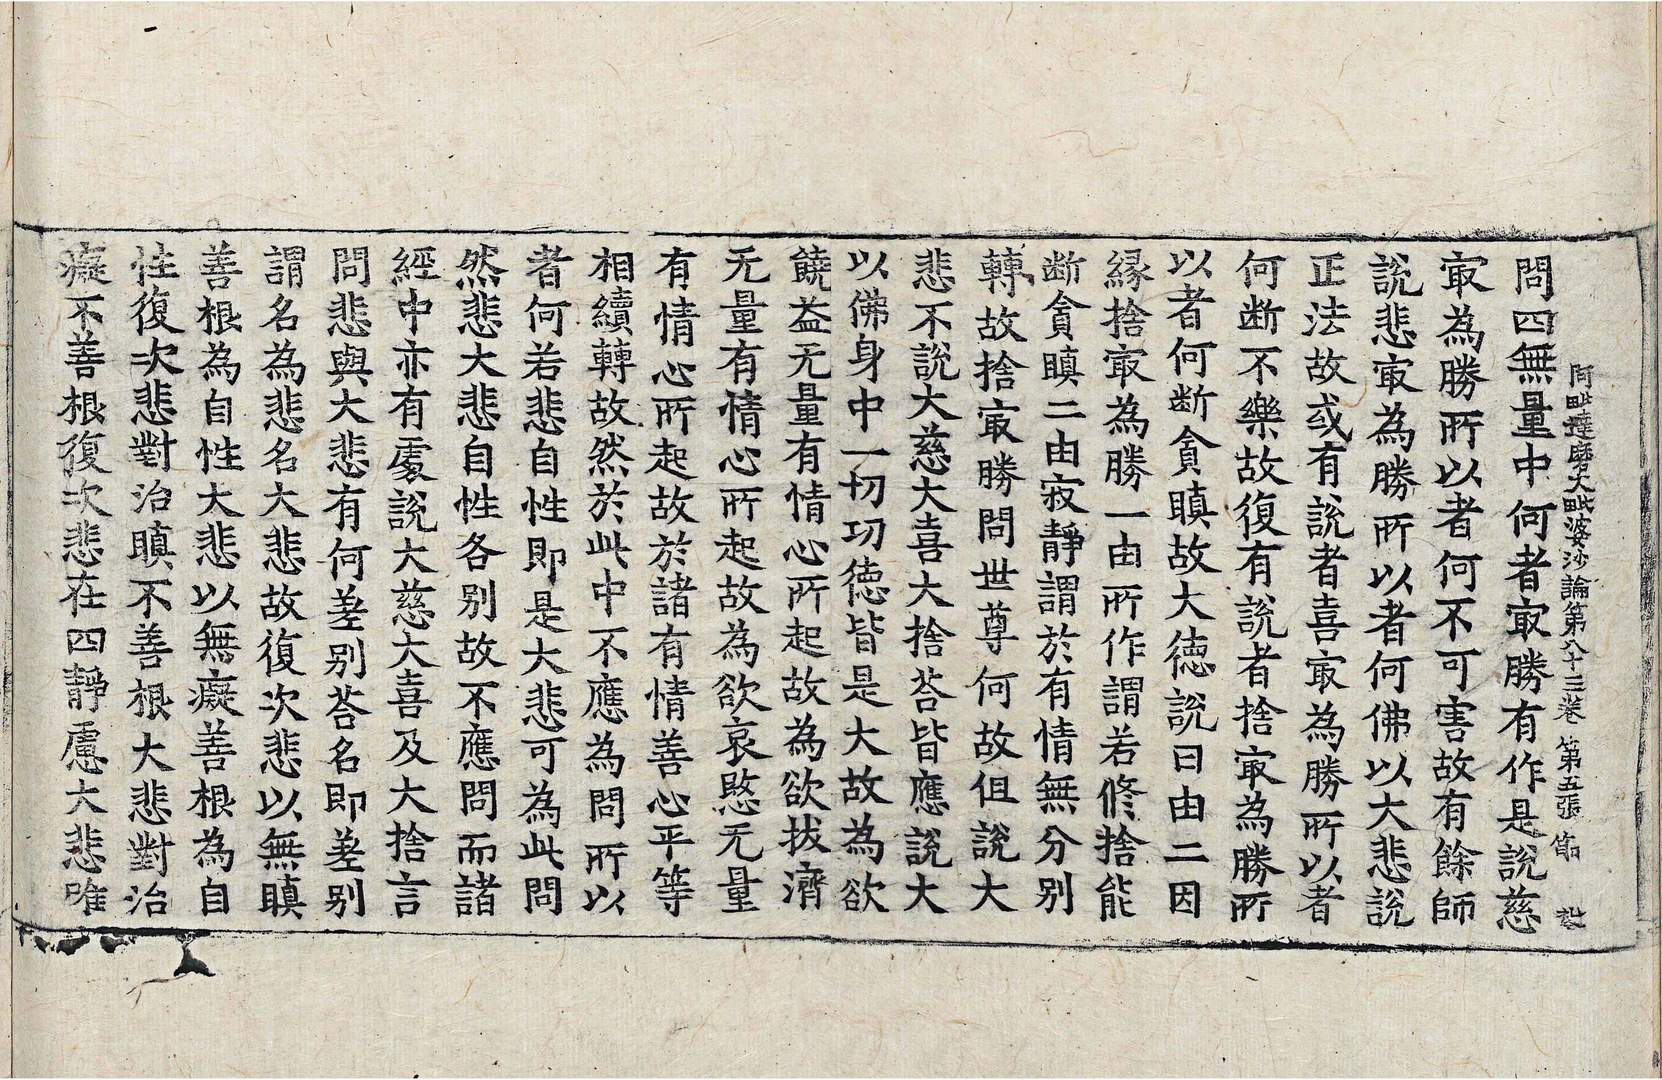 阿毗達磨大毗婆沙論第八十三卷 第五張 節
問四無量中何者㝡勝有作是說慈
㝡為勝所以者何不可害故有餘師
說悲㝡為勝所以者何佛以大悲說
正法故或有說者喜㝡為勝所以者
何断不樂故復有說者捨㝡為勝所
以者何断貪瞋故大徳說曰由二因
縁捨㝡為勝一由所作謂若修捨能
断貪瞋二由寂靜謂於有情無分别
轉故捨㝡勝問世尊何故但說大
悲不說大慈大喜大捨荅皆應說大
以佛身中一切功徳皆是大故為欲
饒益无量有情心所起故為欲拔濟
无量有情心所起故為欲哀愍无量
有情心所起故於諸有情善心平等
相續轉故然於此中不應為問所以
者何若悲自性即是大悲可為此問
然悲大悲自性各别故不應問而諸
經中亦有處說大慈大喜及大捨言
問悲與大悲有何差别荅名即差别
謂名為悲名大悲故復次悲以無瞋
善根為自性大悲以無癡善根為自
性復次悲對治瞋不善根大悲對治
癡不善根復次悲在四靜慮大悲唯